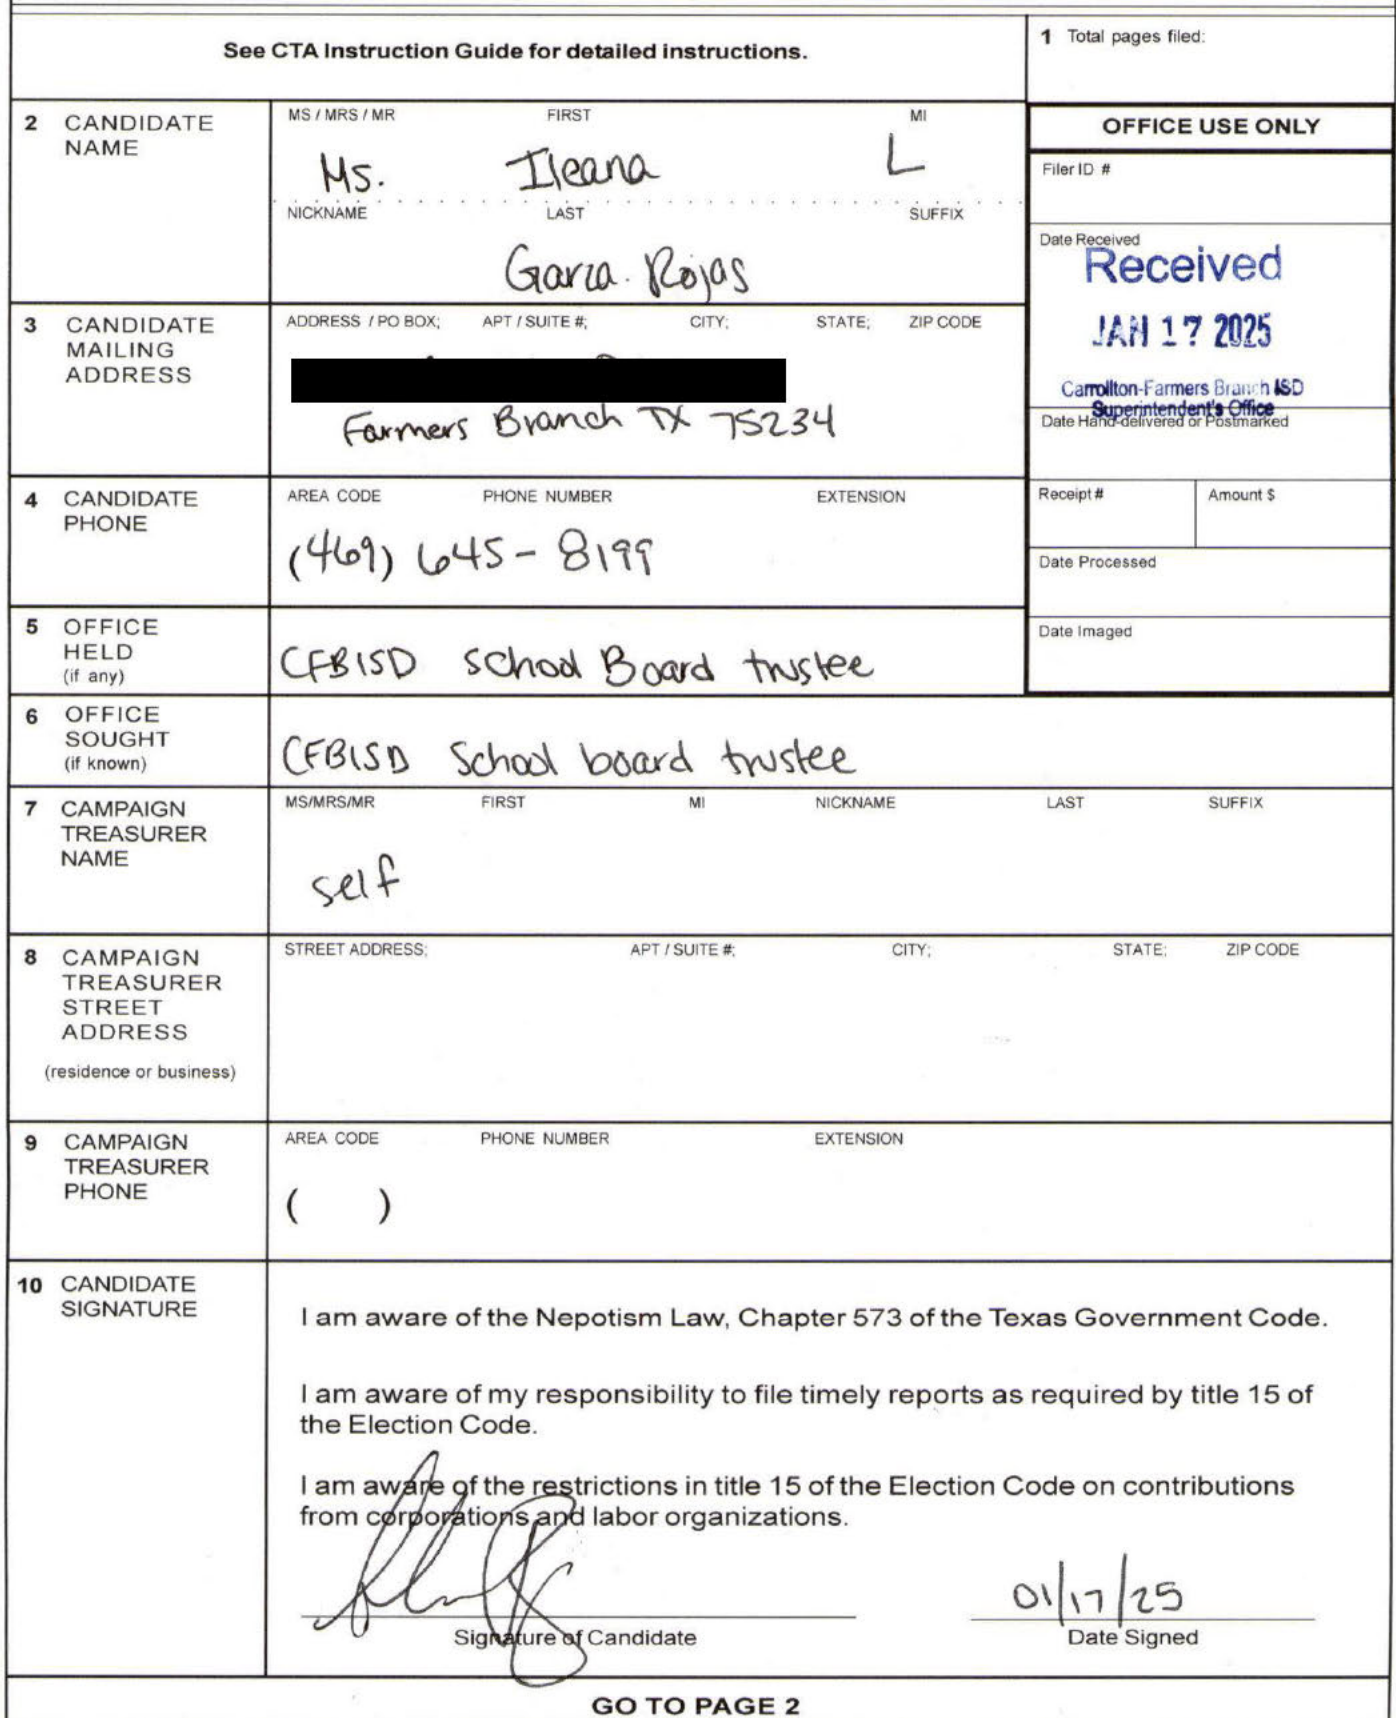 See CTA Instruction Guide for detailed instructions.
1 Total pages filed:
2 CANDIDATE NAME
MS / MRS / MR FIRST MI
Ms. Ileana L
NICKNAME LAST SUFFIX
Garza Rojas
OFFICE USE ONLY
Filer ID #
Date Received
Received
JAN 17 2025
Carrollton-Farmers Branch ISD
Superintendent's Office
Date Hand-delivered or Postmarked
Receipt # Amount $
Date Processed
Date Imaged
3 CANDIDATE MAILING ADDRESS
ADDRESS / PO BOX; APT / SUITE #; CITY; STATE; ZIP CODE
Farmers Branch TX 75234
4 CANDIDATE PHONE
AREA CODE PHONE NUMBER EXTENSION
(469) 645-8199
5 OFFICE HELD (if any)
CFBISD School Board trustee
6 OFFICE SOUGHT (if known)
CFBISD School board trustee
7 CAMPAIGN TREASURER NAME
MS/MRS/MR FIRST MI NICKNAME LAST SUFFIX
self
8 CAMPAIGN TREASURER STREET ADDRESS (residence or business)
STREET ADDRESS; APT / SUITE #; CITY; STATE; ZIP CODE
9 CAMPAIGN TREASURER PHONE
AREA CODE PHONE NUMBER EXTENSION
( )
10 CANDIDATE SIGNATURE
I am aware of the Nepotism Law, Chapter 573 of the Texas Government Code.
I am aware of my responsibility to file timely reports as required by title 15 of
the Election Code.
I am aware of the restrictions in title 15 of the Election Code on contributions
from corporations and labor organizations.
01/17/25
Signature of Candidate Date Signed
GO TO PAGE 2